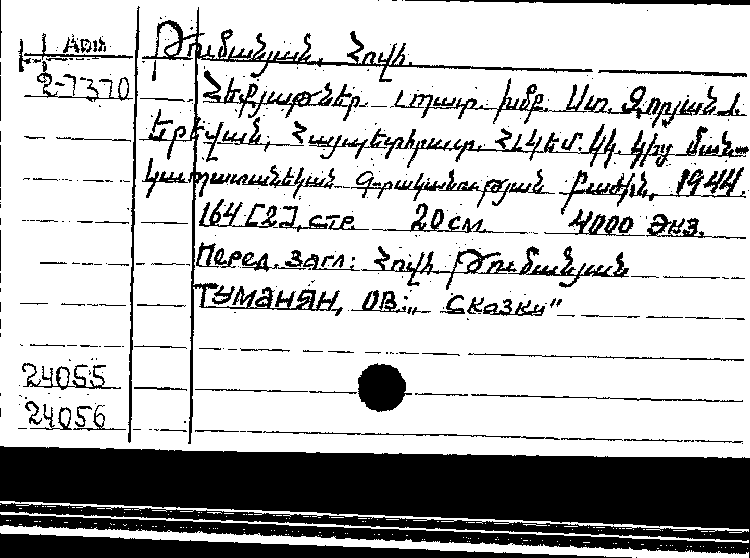 Арм
2-7370
Թումանյան, Հովհ.
Հեքյաթներ. Պատ. խմբ. Ստ. Զորյան
Երեվան, Հայպետհրատ. ՀԼԿԵՄ. ԿԿ. կից ման-
կապատանեկան Գրականության բաժին, 1944.
164 [2], стр. 20 см. 4000 экз.
Перед. загл: Հովհ. Թումանյան
ТУМАНЯН, ОВ.: „Сказки"
24055
24056